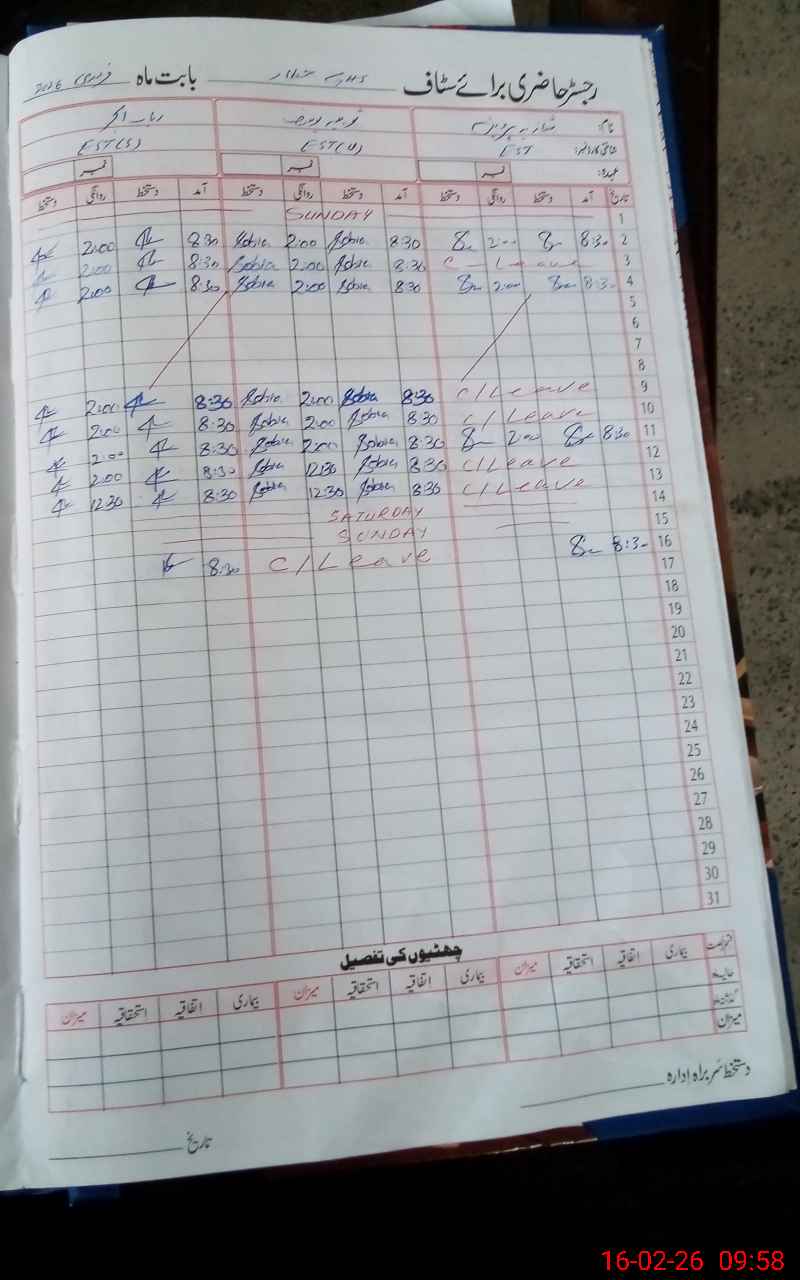 رجسٹر حاضری برائے سٹاف GHS بابت ماہ فروری 2026
نام: شازیہ پروین
شناختی کارڈ نمبر: EST EST(U) EST(S)
عہدہ: نمبر نمبر نمبر
تاریخ آمد دستخط روانگی دستخط آمد دستخط روانگی دستخط آمد دستخط روانگی دستخط
1 SUNDAY
2 8:30 2:00 8:30 Robia 2:00 Robia 8:30 2:00
3 C-Leave 8:30 Robia 2:00 Robia 8:30 2:00
4 8:30 2:00 8:30 Robia 2:00 Robia 8:30 2:00
5
6
7
8
9 C/Leave 8:30 Robia 2:00 Robia 8:30 2:00
10 C/Leave 8:30 Robia 2:00 Robia 8:30 2:00
11 8:30 2:00 8:30 Robia 2:00 Robia 8:30 2:00
12 C/Leave 8:30 Robia 12:30 Robia 8:30 2:00
13 C/Leave 8:30 Robia 12:30 Robia 8:30 12:30
14 SATURDAY
15 SUNDAY
16 8:30 C/Leave 8:30
17
18
19
20
21
22
23
24
25
26
27
28
29
30
31
چھٹیوں کی تفصیل
قسم رخصت بیماری اتفاقیہ استحقاقیہ میزان بیماری اتفاقیہ استحقاقیہ میزان بیماری اتفاقیہ استحقاقیہ میزان
حالیہ ماہ
گذشتہ ماہ
میزان
دستخط سربراہ ادارہ
تاریخ
16-02-26 09:58